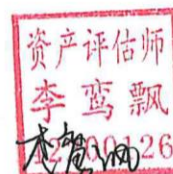 资产评估师
李鸾飘
00126